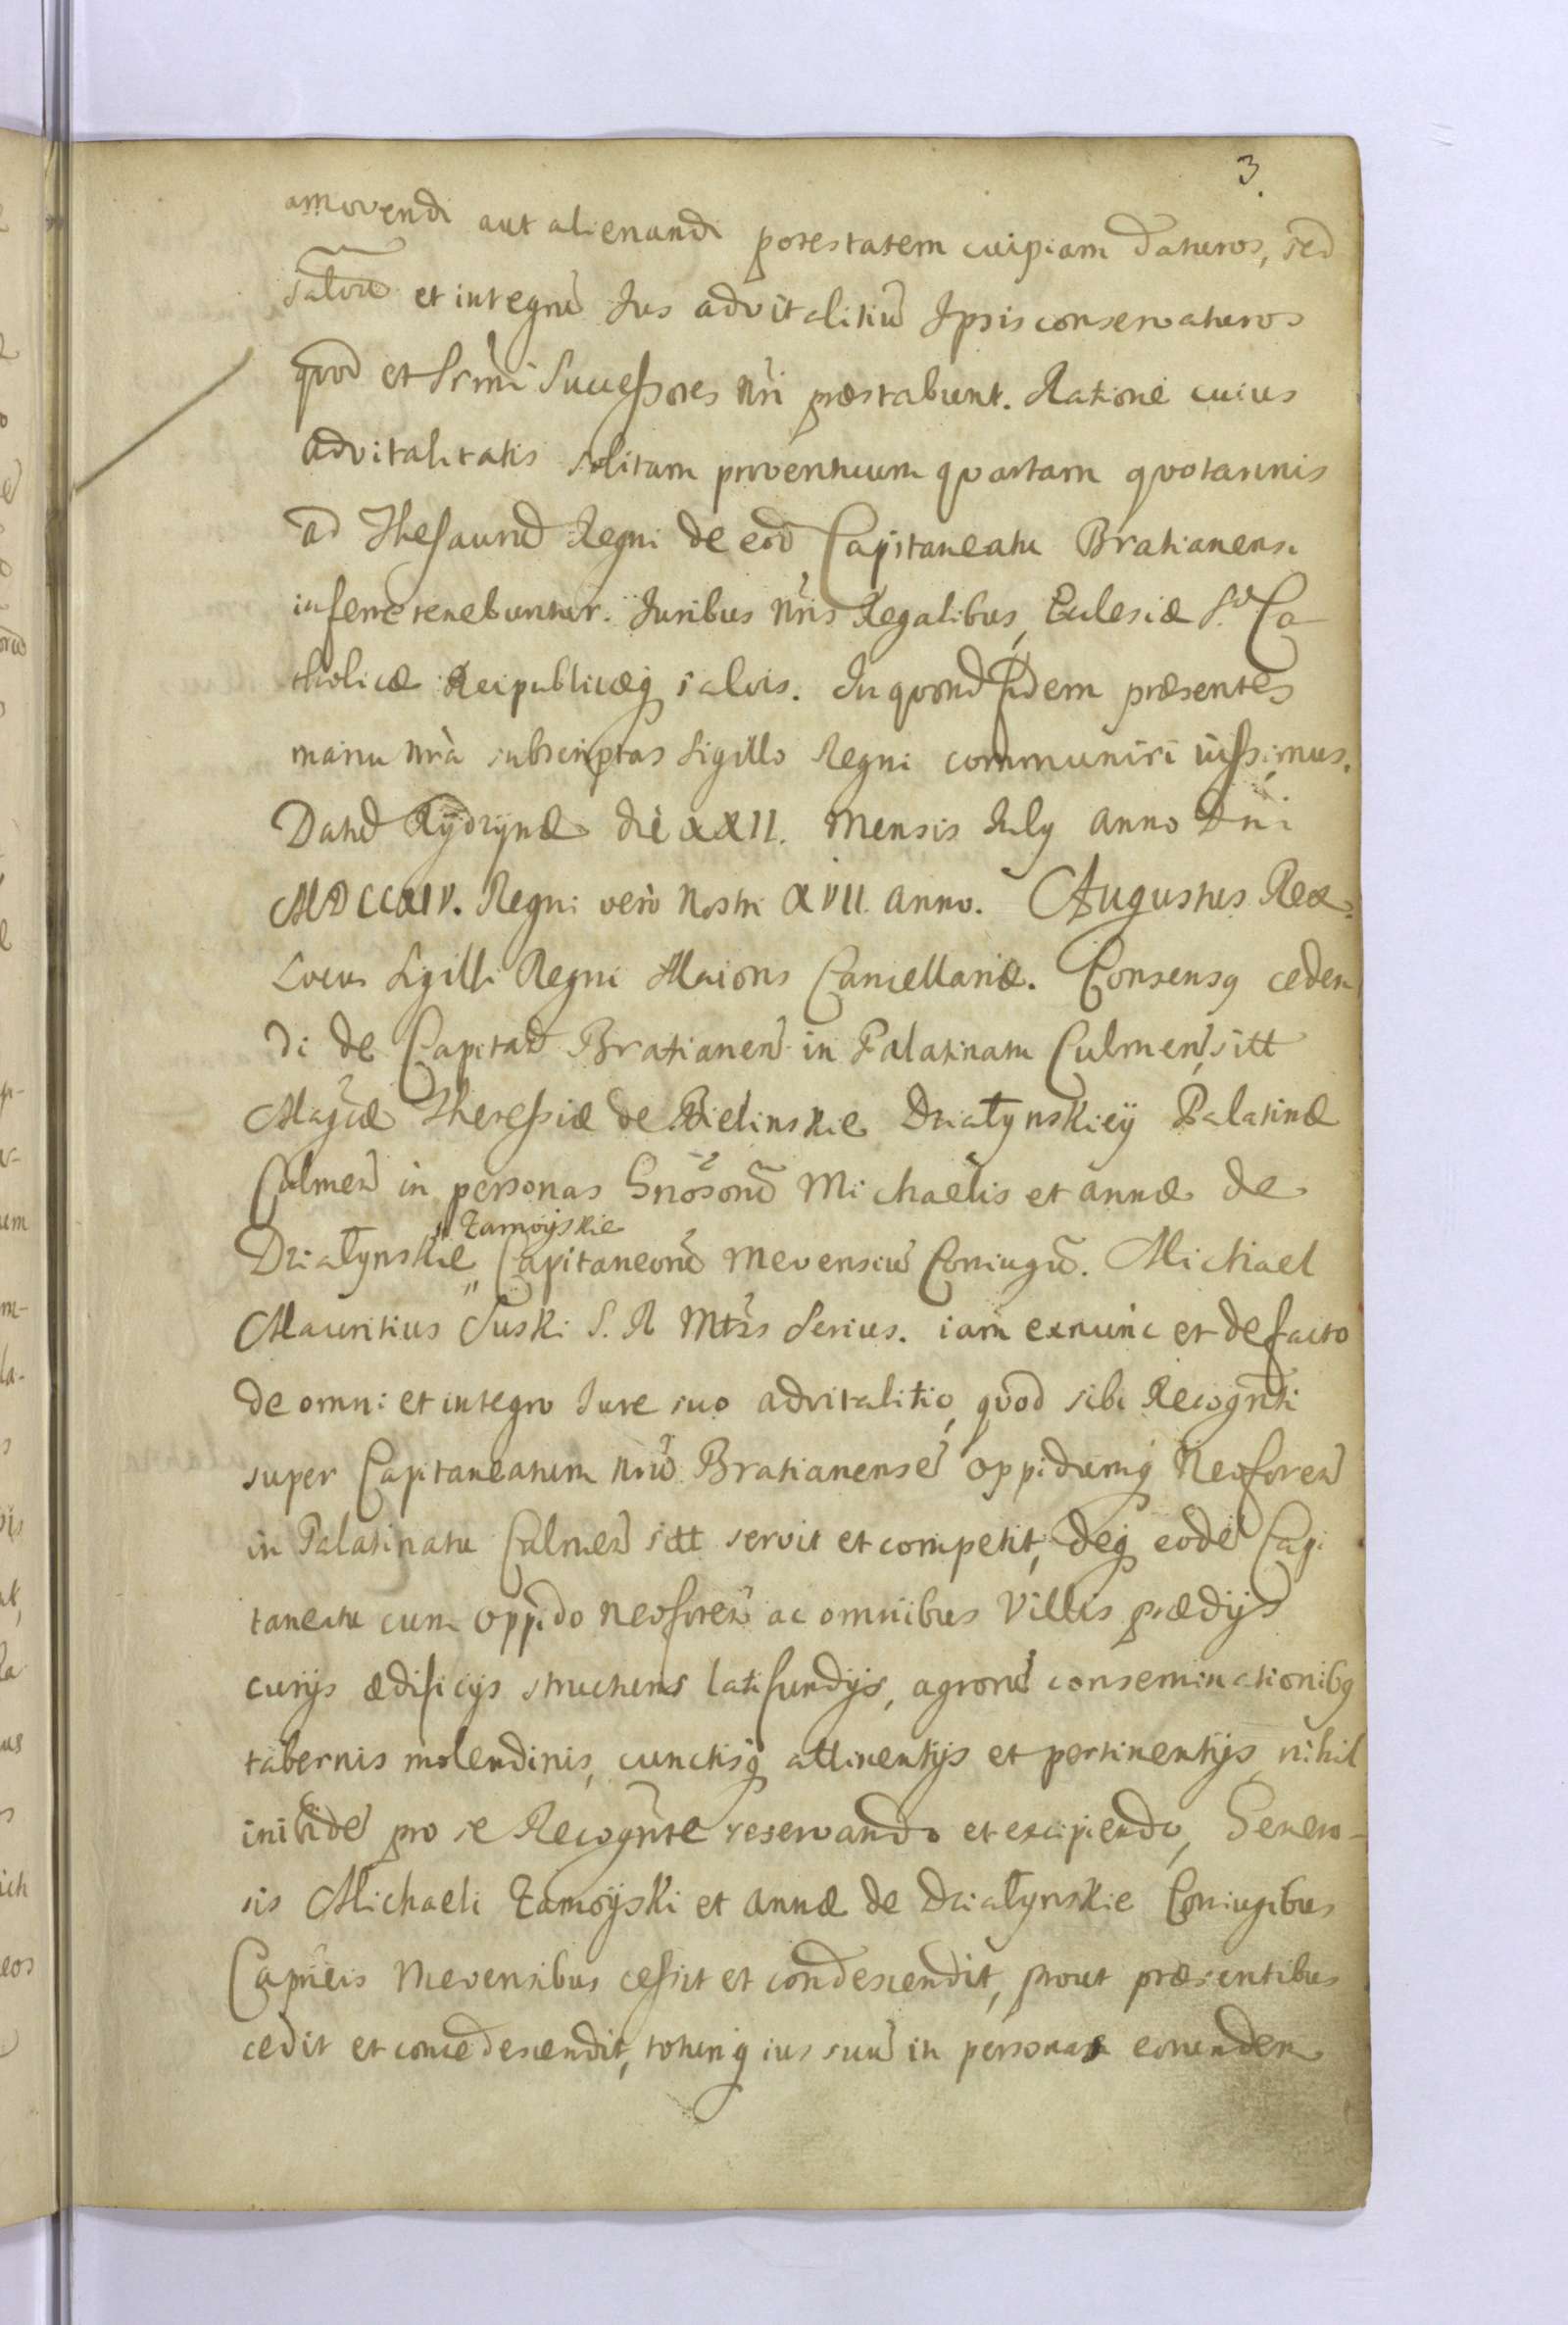 3.
amovendi aut alienandi potestatem cuipiam daturos, sed
salvũ et integrũ Jus advitalitiũ Ipsis conservaturos
quod et Srmi Successores nri præstabunt. Ratione cuius
advitalitatis solitam proventuum quartam quotannis
ad Thesaurũ Regni de eod Capitaneatu Bratianensi
inferre tenebuntur. Juribus nris Regalibus, Eclesiæ S. Ca
tholicæ Reipublicæq salvis. In quorũ fidem præsentes
manu nrà subscriptas Sigillo Regni communiri iussimus.
Datũ Rydzynæ die XXII. Mensis July anno Dni
MDCCXIV. Regni verò nostri XVII anno. Augustus Rex.
Locus Sigilli Regni Maioris Cancellariæ. Consensq ceden
di de Capitañ Bratianeñ in Palatinatu Culmeñ sitt
Magcæ Theressiæ de Bielinskie Działynskiey Palatinæ
Culmeñ in personas Gnosorũ Michaelis et Annæ de
Działynskie Zamoyskie Capitaneorũ Mevensiũ Coniugũ. Michael
Mauritius Suski S. R Mttis Secrius. iam exnunc et de facto
de omni et integro Jure suo advitalitio, quod sibi Recognti
super Capitaneatum nrũ Bratianensẽ oppidumq Neoforeñ
in Palatinatu Culmeñ sitt servit et competit, deq eodẽ Capi
taneatu cum oppido Neoforeñ ac omnibus Villis prædijs
curijs ædificijs structuris latifundijs, agrorũ conseminationibq
tabernis molendinis, cunctisq attinentijs et pertinentijs nihil
inibidẽ pro se Recognte reservando et excipiendo, Genero-
sis Michaeli Zamoyski et Annæ de Działynskie Coniugibus
Capneis Mevensibus cessit et condescendit, prout præsentibus
cedit et concedescendit, totumq ius suũ in personas eorundem